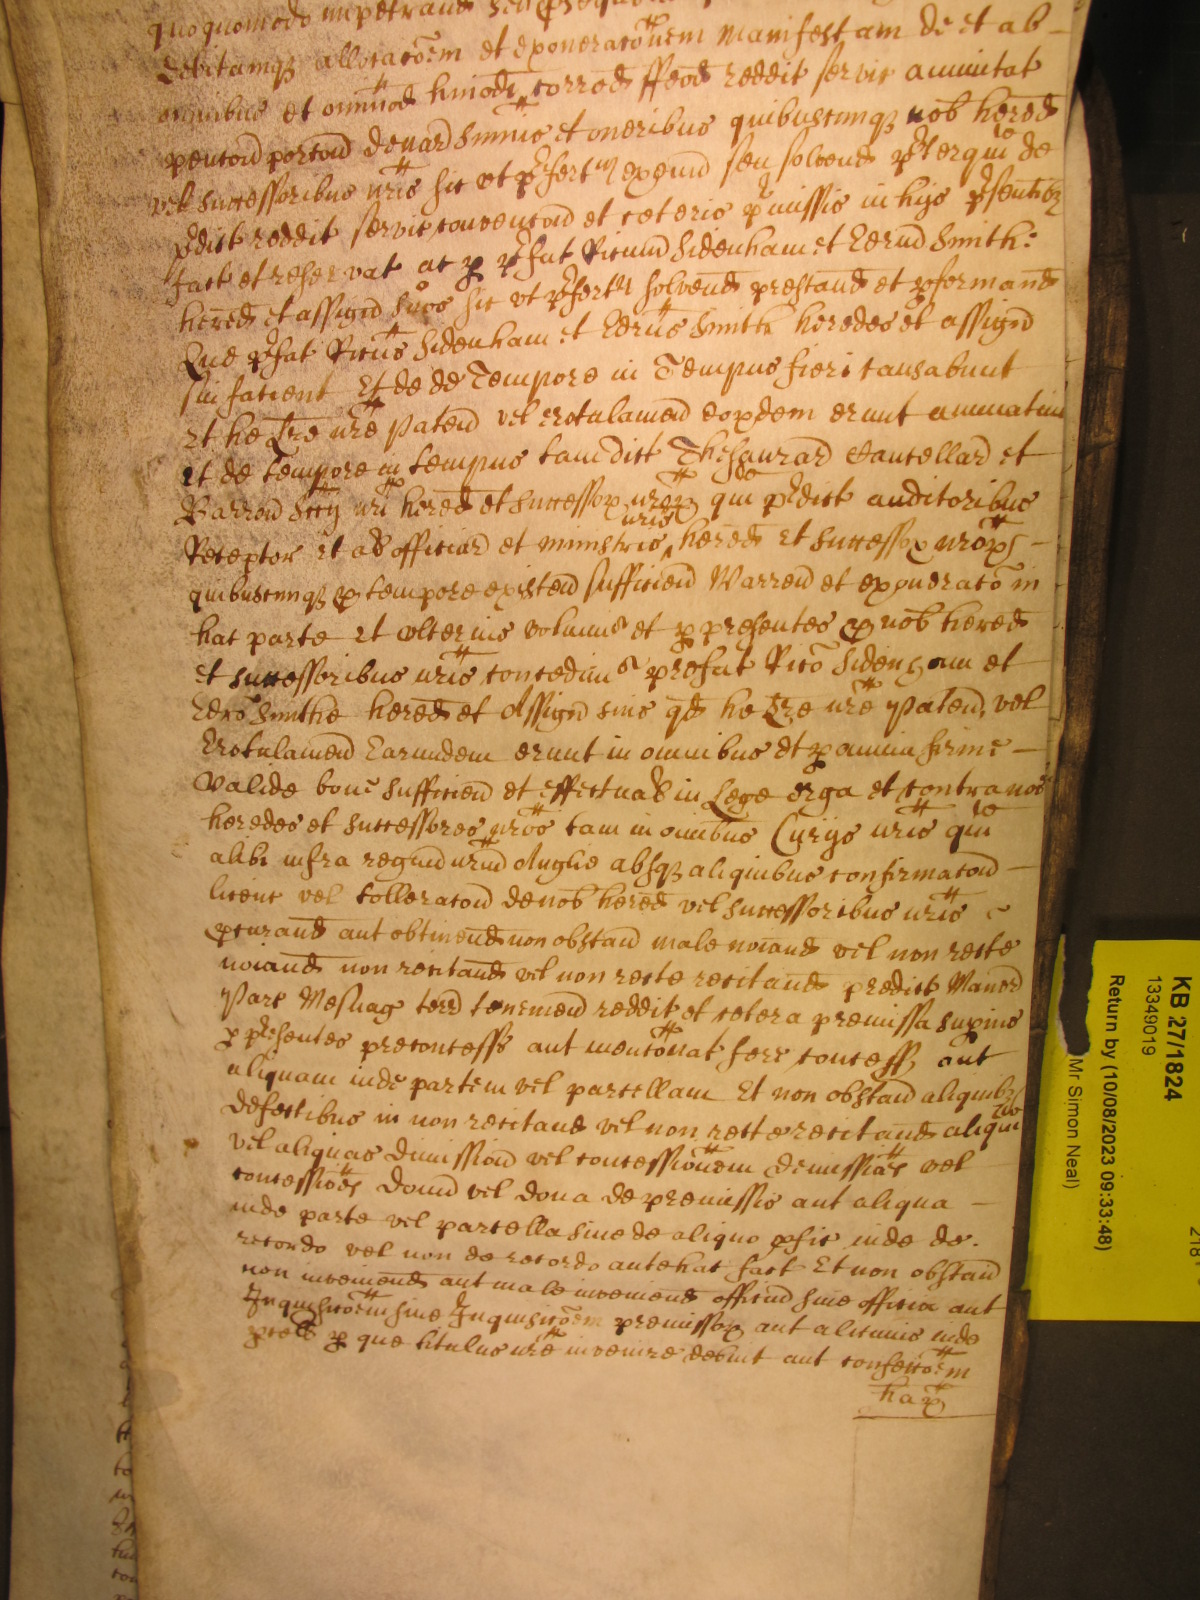 quoquomodo impetrand seu
debitamqz allocacoem et exoneracoem manifestam de et ab
omnibus et omniod hmodi corrod ffeod reddit servic annuitat
pencon porcon denar sumis et oneribus quibuscunqz nob hered
vel successoribus nris sic ut prfert exeund seu solvend prterqm de
prdict reddit servic convencon et ceteris prmissis in hijs prsentibz
fact et reservat ac p prfat Ricum Sidenham et Edrum Smith
hered et assign suos sic ut prfertr solvend prestand et performand
Que prfat Ricus Sidenham et Edrus Smith heredes et assign
sui facient Et de de Tempore in Tempus fieri causabunt
Et he Lre nre Paten vel Irotulamen eordem erunt annuatim
et de tempore in tempus tam dict Thesaurar Cancellar et
Barron Sccij nri hered et successor nror qm prdict auditoribus
Receptor et al officiar et ministris nris hered et successor nror
quibuscunqz p tempore existen sufficien Warren et exoneraco in
hac parte Et ulterius volumus et p presentes p nob hered
et successoribus nris concedimus prefat Rico Sidenham et
Edro Smithe hered et Assign suis qd he Lre nre Paten vel
Irotulamen Earundem erunt in omnibus et p omnia firme
valide bone sufficien et effectual in Lege erga et contra nos
heredes et successores nros tam in omibus Curijs nris qm
alibi infra regnum nrum Anglie absqz aliquibus confirmacon
licenc vel tolleracon de nob hered vel successoribus nris
procurand aut obtinend non obstan male noiand vel non recte
noiand non recitand vel non recte recitand predict Maner
Parc Mesuag terr tenemen reddit et cetera premissa superius
p prsentes preconcess aut menconat fore concess aut
aliquam inde partem vel parcellam Et non obstan aliquibz
defectibus in non recitand vel non recte recitand aliqm
vel aliquas dimission vel concessionem dimissiões vel
concessiões donum vel dona de premissis aut aliqua
inde parte vel parcella sive de aliquo prfic inde de
recordo vel non de recordo antehac fact Et non obstan
non inveniend aut male inveniend officium sive officia aut
Inquisicoem sive Inquisicoem premissor aut alicuius inde
prcell p que titulus nre invenire debuit aut confeccoem
har
KB 27/1824
13349019
Return by (10/08/2023 09:33:48)
Mr Simon Neal)